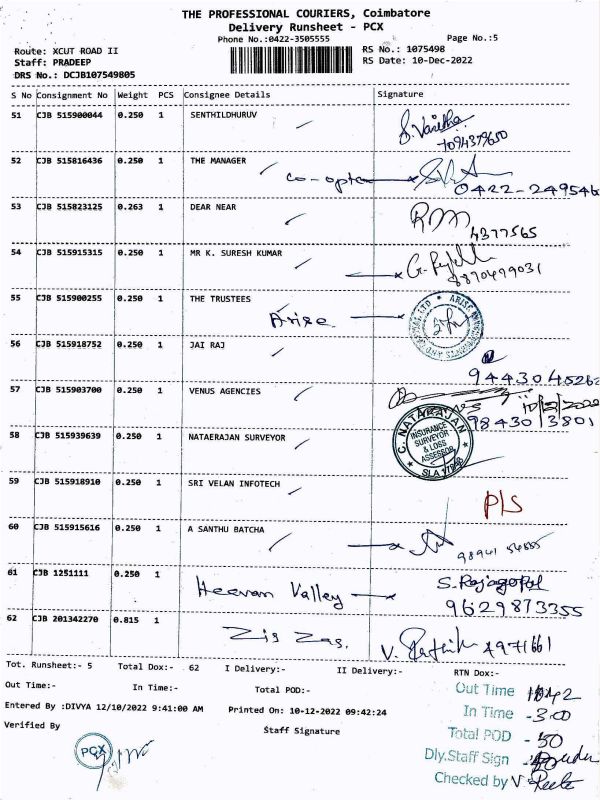 THE PROFESSIONAL COURIERS, Coimbatore
Delivery Runsheet - PCX
Phone No.:0422-3505555
Page No.:5
Route: XCUT ROAD II
RS No.: 1075498
Staff: PRADEEP
RS Date: 10-Dec-2022
DRS No.: DCJB107549805
S No Consignment No Weight PCS Consignee Details Signature
51 CJB 515900044 0.250 1 SENTHILDHURUV
S. Vanitha
7094379650
52 CJB 515816436 0.250 1 THE MANAGER
0422-249546
53 CJB 515823125 0.263 1 DEAR NEAR
4377565
54 CJB 515915315 0.250 1 MR K. SURESH KUMAR
8870499031
55 CJB 515900255 0.250 1 THE TRUSTEES
Arise
56 CJB 515918752 0.250 1 JAI RAJ
9443045262
57 CJB 515903700 0.250 1 VENUS AGENCIES
98430 13801
58 CJB 515939639 0.250 1 NATAERAJAN SURVEYOR
C. NATARAJAN
INSURANCE
SURVEYOR
& LOSS
ASSESSOR
59 CJB 515918910 0.250 1 SRI VELAN INFOTECH
P/S
60 CJB 515915616 0.250 1 A SANTHU BATCHA
61 CJB 1251111 0.250 1
Heevan Valley S. Rajagopal
9629873355
62 CJB 201342270 0.815 1
Zig Zag. 4971661
Tot. Runsheet:- 5 Total Dox:- 62 I Delivery:- II Delivery:- RTN Dox:-
Out Time:- In Time:- Total POD:-
Out Time
Entered By :DIVYA 12/10/2022 9:41:00 AM Printed On: 10-12-2022 09:42:24
In Time -3.00
Verified By Staff Signature
Total POD -50
PCX
Dly.Staff Sign
Checked by